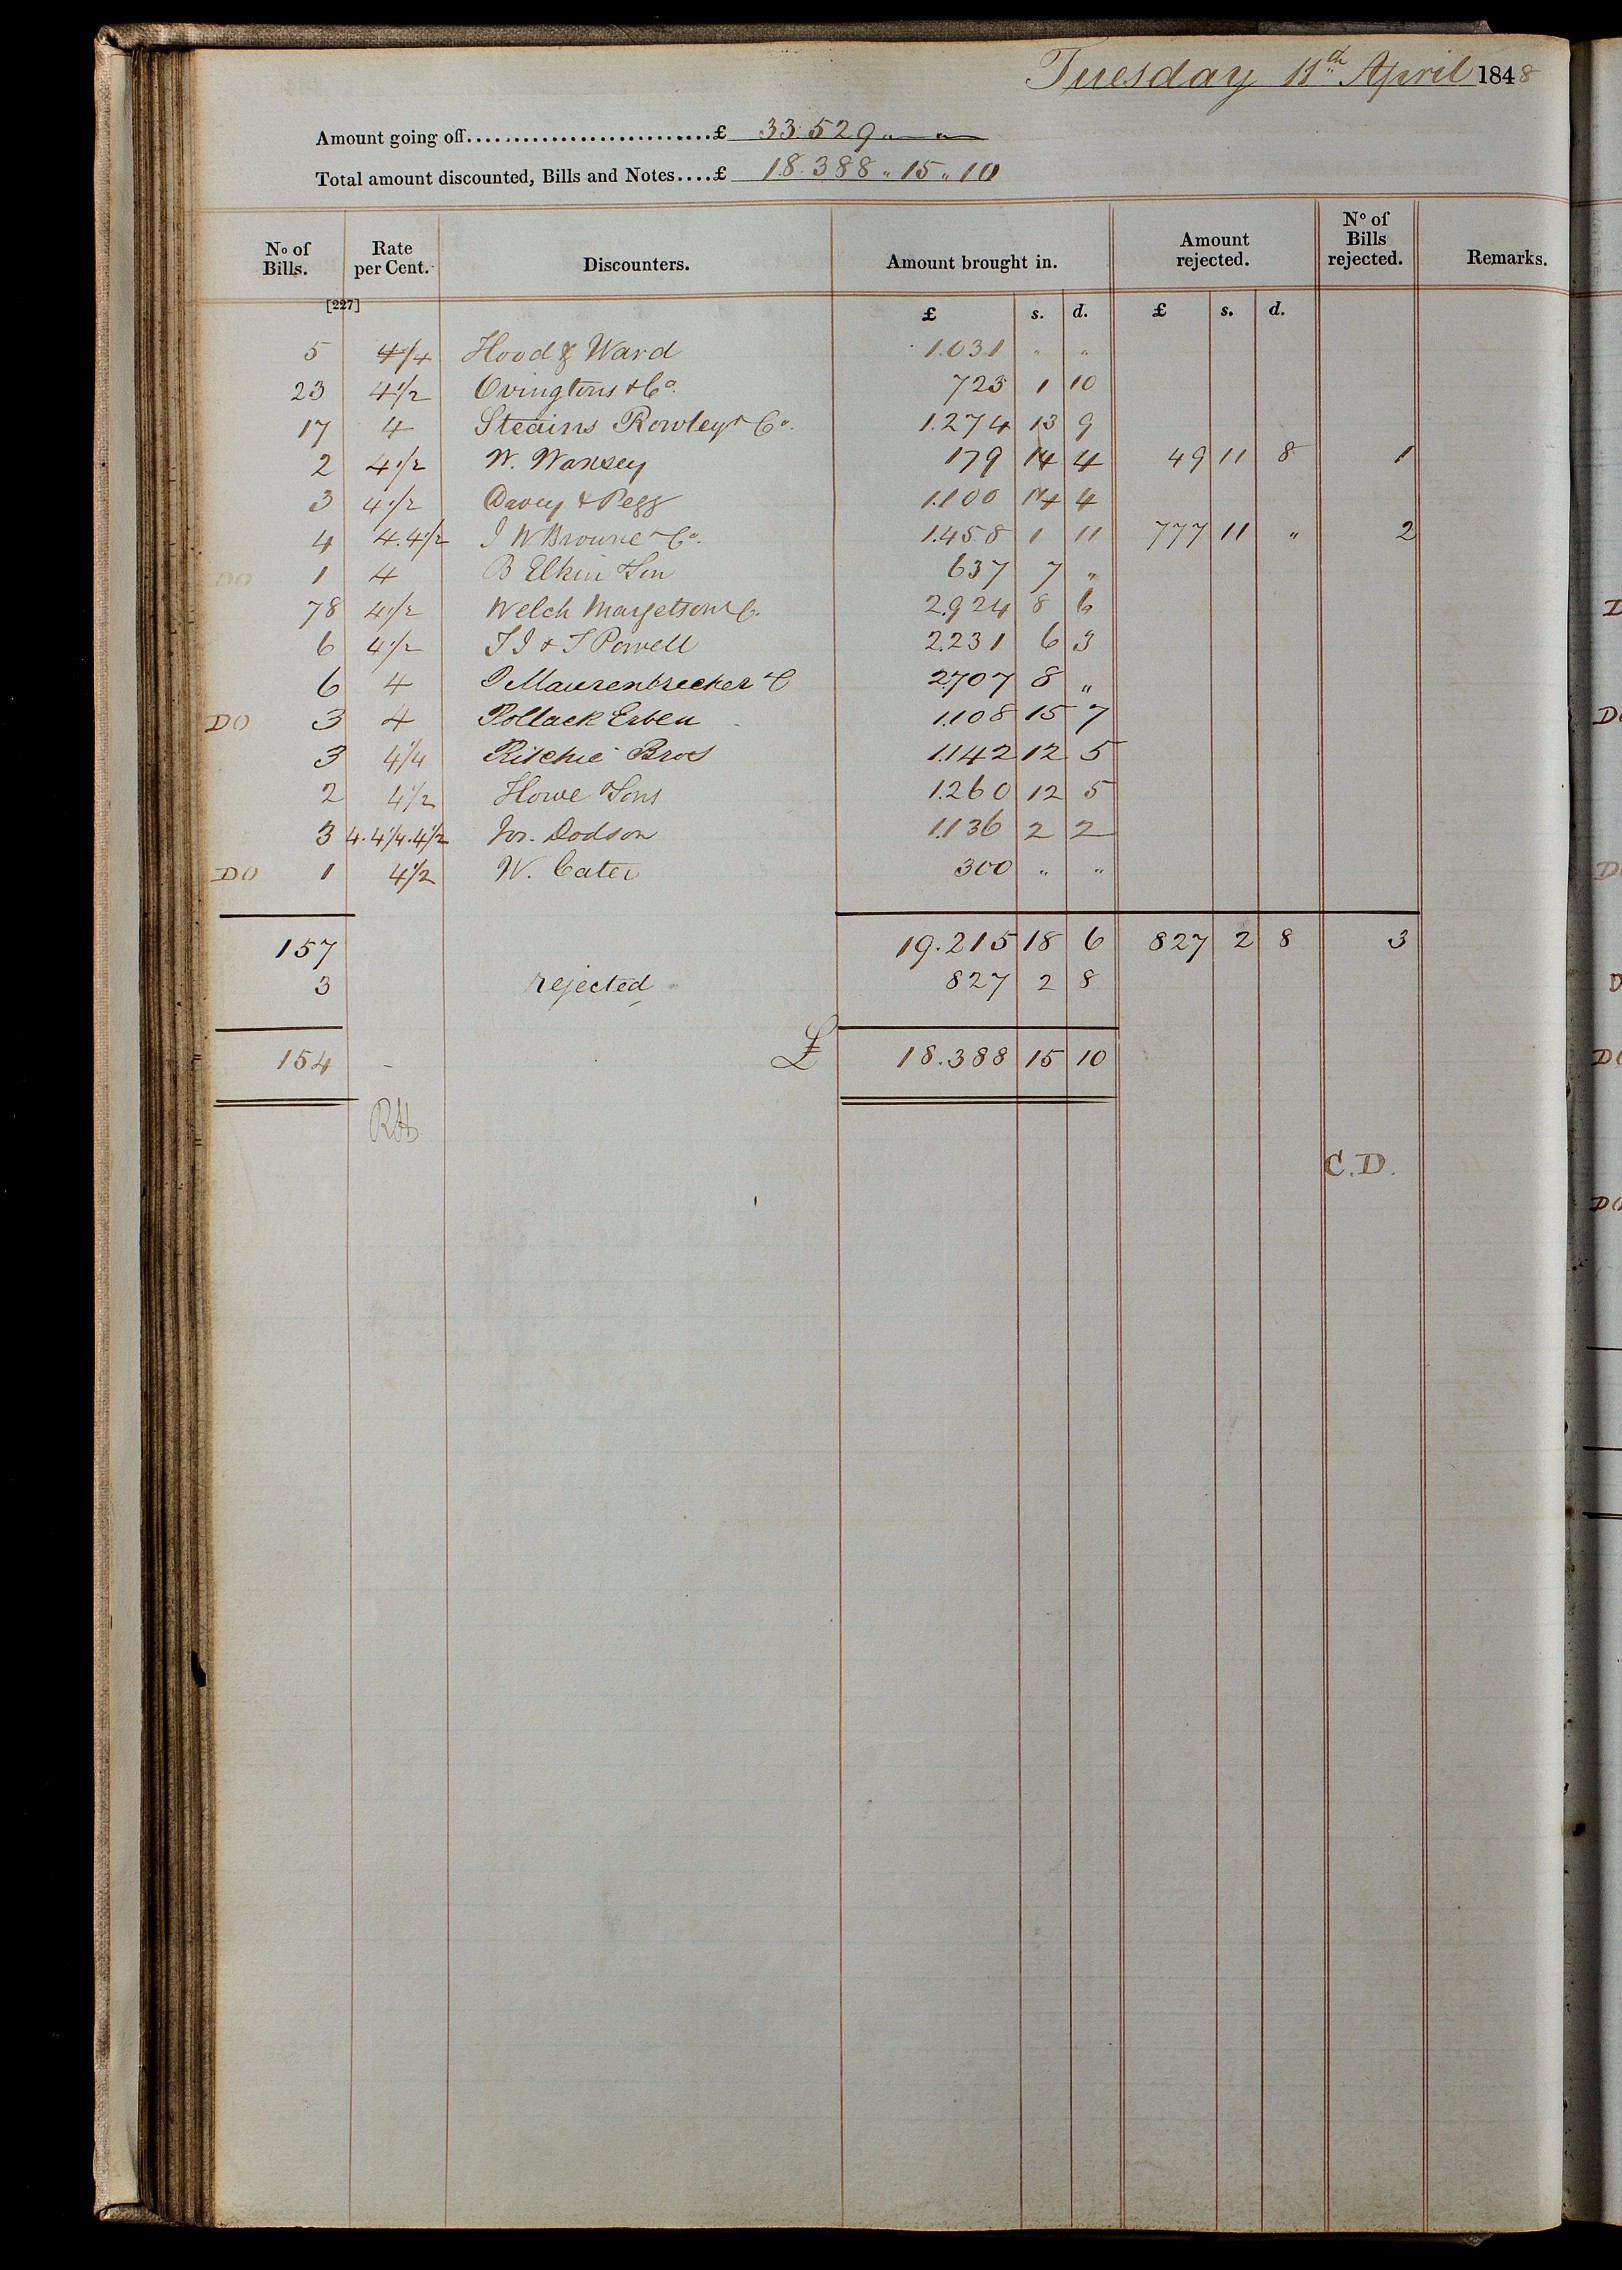 Tuesday 11th April 1848
Amount going off..........................£ 33.529 " — " —
Total amount discounted, Bills and Notes....£ 18.388 " 15 " 10
No of Bills. Rate per Cent. Discounters. Amount brought in. Amount rejected. No of Bills rejected. Remarks.
[227]
£ s. d. £ s. d.
5 4 1/4 Hood & Ward 1.031 " "
23 4 1/2 Ovingtons & Co. 723 1 10
17 4 Steains Rowley & Co. 1.274 13 9
2 4 1/2 W. Wansey 179 14 4 49 11 8 1
3 4 1/2 Davey & Pegg 1.100 14 4
4 4.4 1/2 J W Browne & Co. 1.458 1 11 777 11 " 2
DO 1 4 B Elkin & Son 637 7 "
78 4 1/2 Welch Margetson & C. 2.924 8 6
6 4 1/2 T J & T Powell 2.231 6 3
6 4 Maurenbrecher & C 2.707 8 "
DO 3 4 Pollack Erben 1.108 15 7
3 4 1/4 Ritchie Bros 1.142 12 5
2 4 1/2 Howe & Sons 1.260 12 5
3 4.4 1/4.4 1/2 Dodson 1.136 2 2
DO 1 4 1/2 W. Cater 300 " "
157 19.215 18 6 827 2 8 3
3 rejected 827 2 8
154 £ 18.388 15 10
RH
C.D.